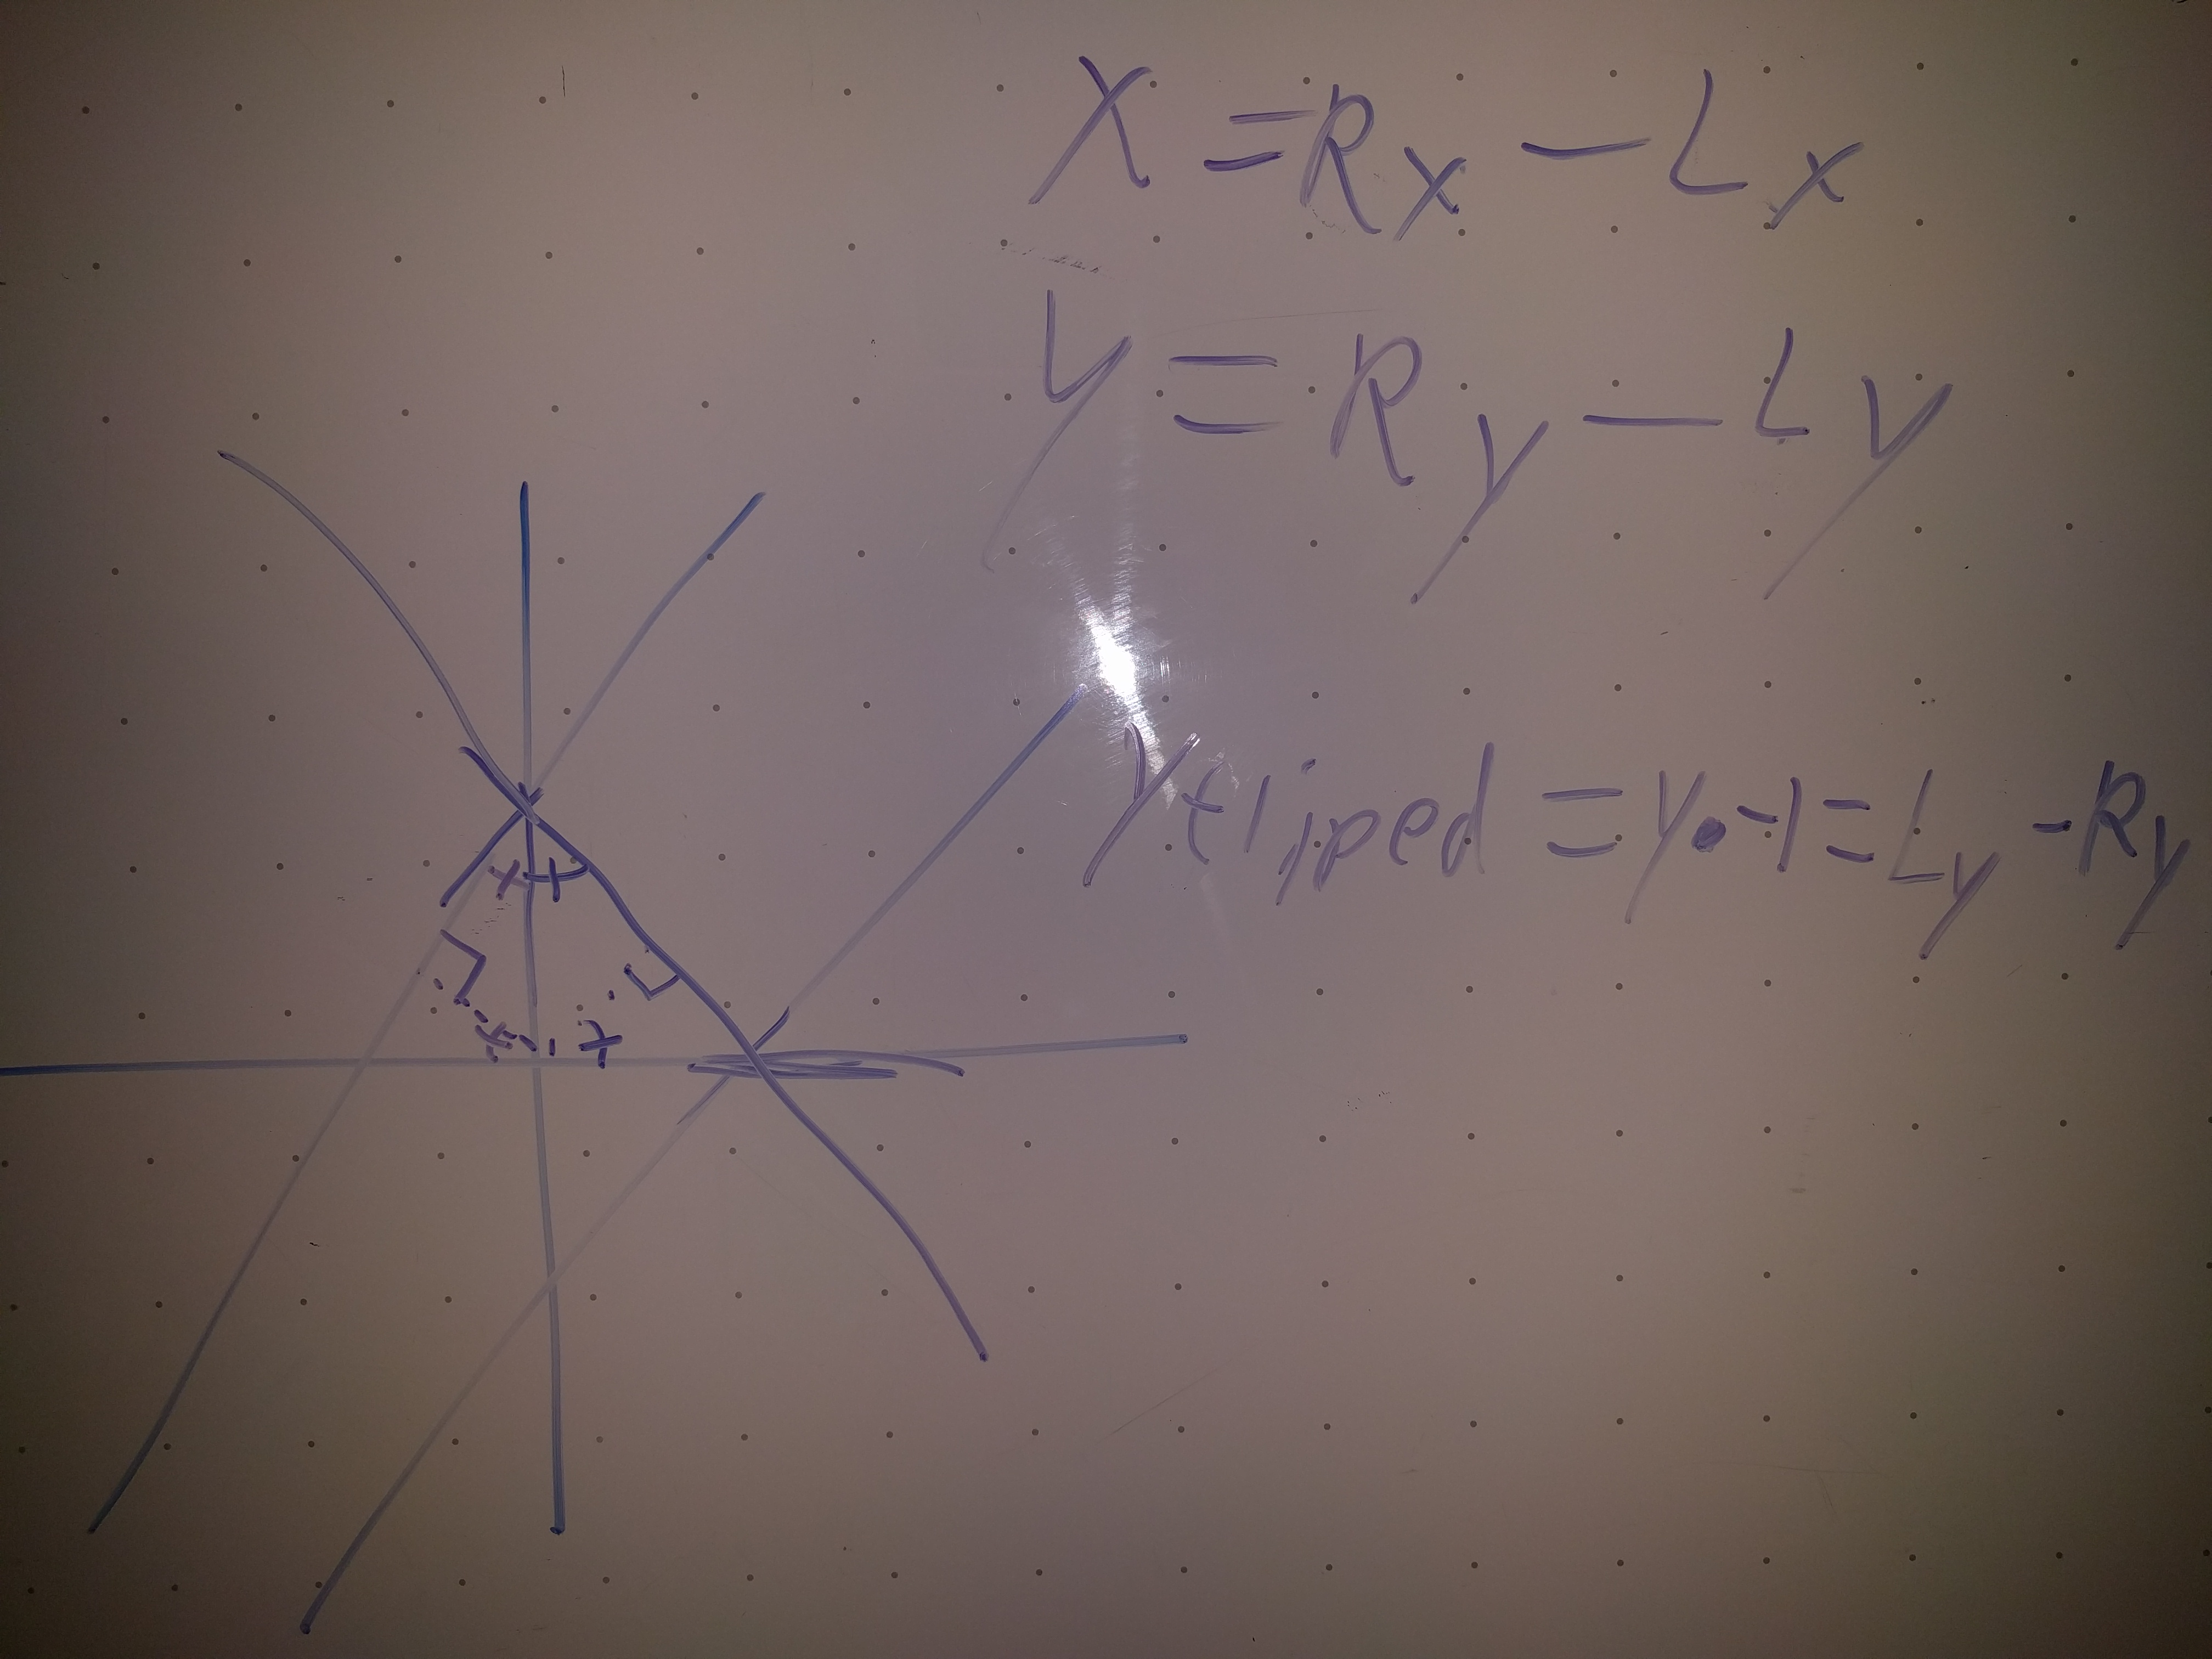 X = Rx - Lx
y = Ry - Ly
Yfliped = y • -1 = Ly - Ry